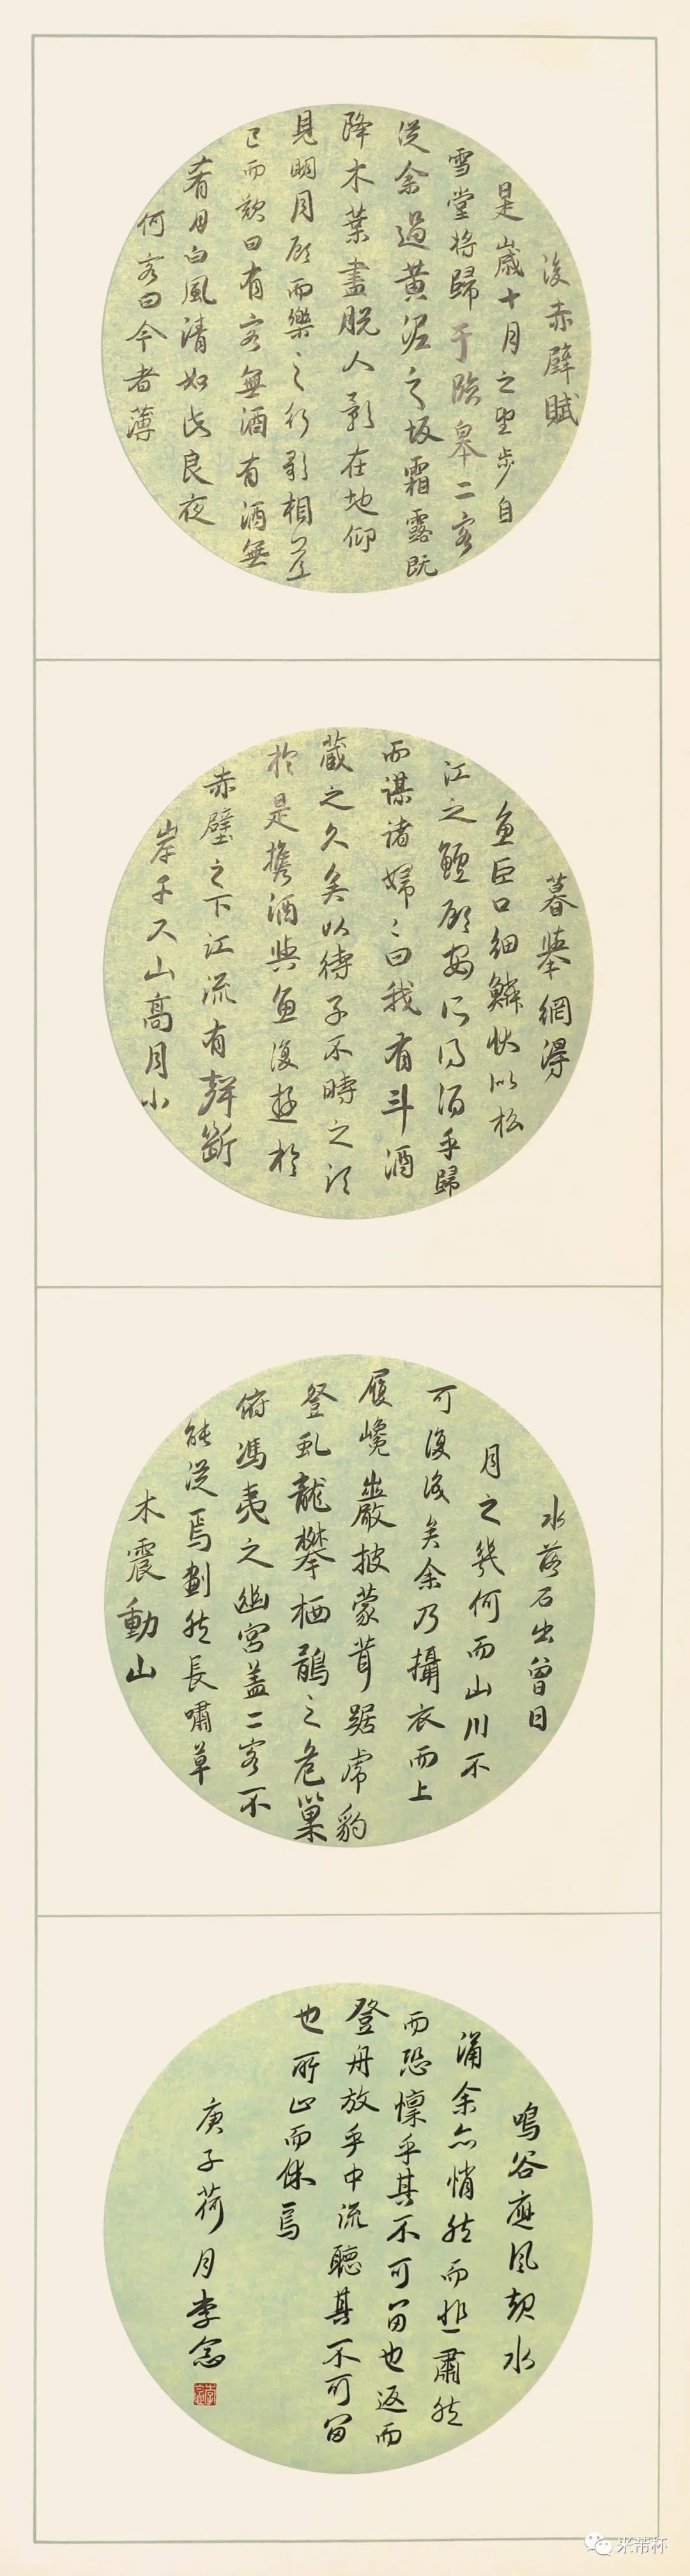 後赤壁賦
是歲十月之望步自
雪堂將歸于臨皋二客
從余過黃泥之坂霜露既
降木葉盡脫人影在地仰
見明月顧而樂之行歌相答
已而歎曰有客無酒有酒無
肴月白風清如此良夜
何客曰今者薄
暮舉網得
魚巨口細鱗狀似松
江之鱸顧安所得酒乎歸
而謀諸婦〻曰我有斗酒
藏之久矣以待子不時之須
於是攜酒與魚復遊於
赤壁之下江流有聲斷
岸千尺山高月小
水落石出曾日
月之幾何而山川不
可復識矣余乃攝衣而上
履巉巖披蒙茸踞虎豹
登虬龍攀栖鶻之危巢
俯馮夷之幽宮蓋二客不
能從焉劃然長嘯草
木震動山
鳴谷應風起水
涌余亦悄然而悲肅然
而恐懍乎其不可留也返而
登舟放乎中流聽其不可留
也所止而休焉
庚子荷月李念
米芾杯